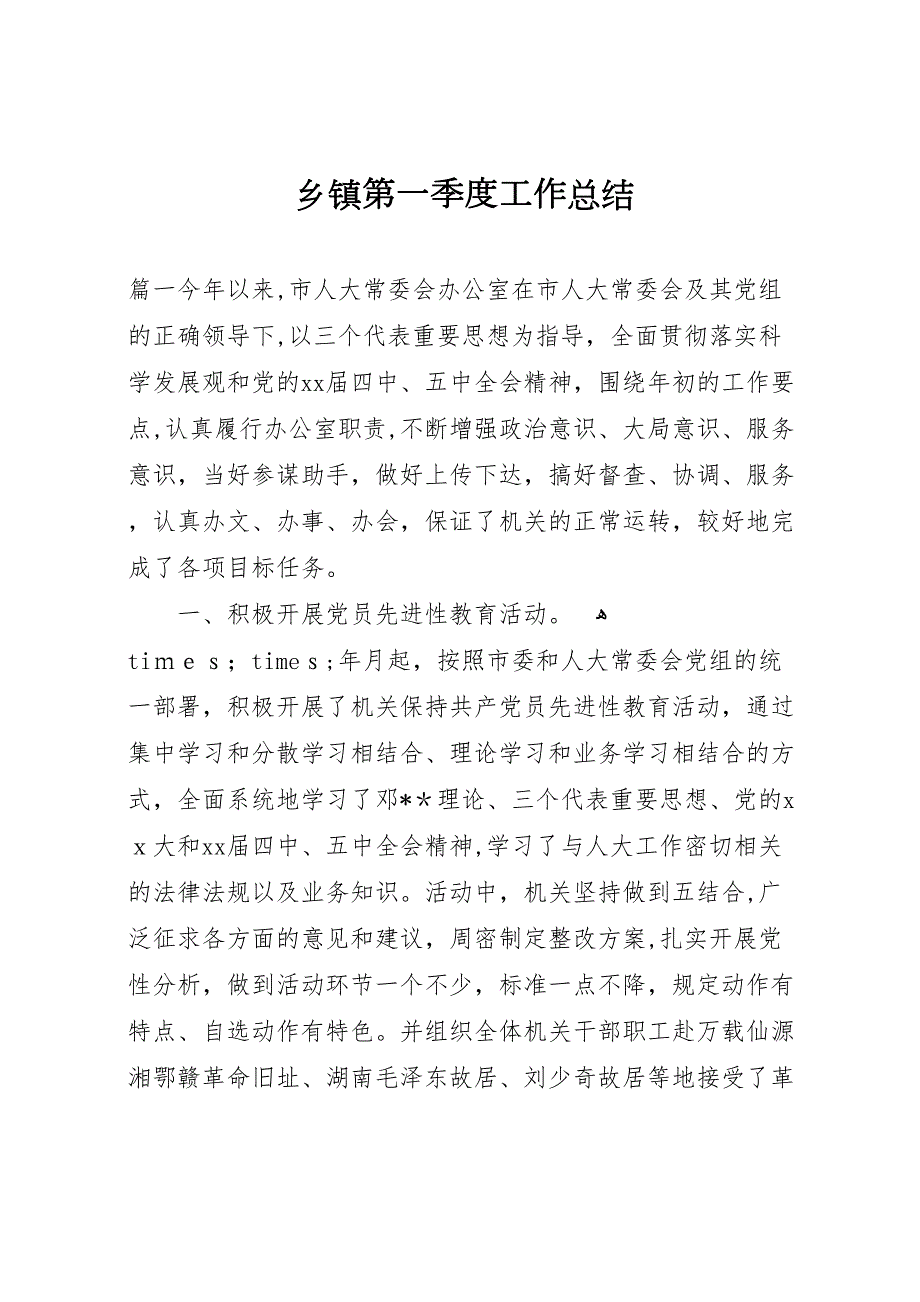 乡镇第一季度工作总结
篇一今年以来,市人大常委会办公室在市人大常委会及其党组
的正确领导下,以三个代表重要思想为指导，全面贯彻落实科
学发展观和党的xx届四中、五中全会精神，围绕年初的工作要
点,认真履行办公室职责,不断增强政治意识、大局意识、服务
意识，当好参谋助手，做好上传下达，搞好督查、协调、服务
，认真办文、办事、办会，保证了机关的正常运转，较好地完
成了各项目标任务。
一、积极开展党员先进性教育活动。 ﻫ
timｅｓ；timeｓ;年月起，按照市委和人大常委会党组的统
一部署，积极开展了机关保持共产党员先进性教育活动，通过
集中学习和分散学习相结合、理论学习和业务学习相结合的方
式，全面系统地学习了邓*＊理论、三个代表重要思想、党的x
ｘ大和xx届四中、五中全会精神,学习了与人大工作密切相关
的法律法规以及业务知识。活动中，机关坚持做到五结合,广
泛征求各方面的意见和建议，周密制定整改方案,扎实开展党
性分析，做到活动环节一个不少，标准一点不降，规定动作有
特点、自选动作有特色。并组织全体机关干部职工赴万载仙源
湘鄂赣革命旧址、湖南毛泽东故居、刘少奇故居等地接受了革